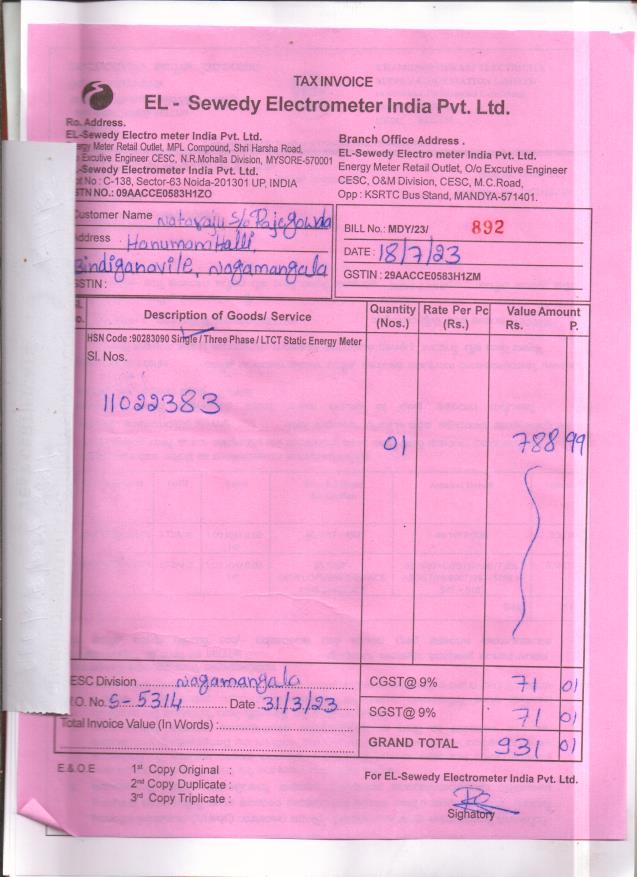 TAX INVOICE
EL - Sewedy Electrometer India Pvt. Ltd.
Ro. Address.
EL-Sewedy Electro meter India Pvt. Ltd.
ergy Meter Retail Outlet, MPL Compound, Shri Harsha Road,
o Excutive Engineer CESC, N.R.Mohalla Division, MYSORE-570001
-Sewedy Electrometer India Pvt. Ltd.
ot No : C-138, Sector-63 Noida-201301 UP, INDIA
STN NO.: 09AACCE0583H1ZO
Branch Office Address .
EL-Sewedy Electro meter India Pvt. Ltd.
Energy Meter Retail Outlet, O/o Excutive Engineer
CESC, O&M Division, CESC, M.C.Road,
Opp : KSRTC Bus Stand, MANDYA-571401.
Customer Name Nataraju S/o Rajegowda
Address Hanumanthalli,
Bindiganavile, Nagamangala
GSTIN :
BILL No.: MDY/23/ 892
DATE : 18/7/23
GSTIN : 29AACCE0583H1ZM
o. Description of Goods/ Service Quantity (Nos.) Rate Per Pc (Rs.) Value Amount Rs. P.
HSN Code :90283090 Single / Three Phase / LTCT Static Energy Meter
Sl. Nos.
11022383
01 788 99
ESC Division Nagamangala
.O. No. S-5314 Date 31/3/23
Total Invoice Value (In Words) :
CGST@ 9% 71 01
SGST@ 9% 71 01
GRAND TOTAL 931 01
E & O E
1st Copy Original :
2nd Copy Duplicate :
3rd Copy Triplicate :
For EL-Sewedy Electrometer India Pvt. Ltd.
Sighatory